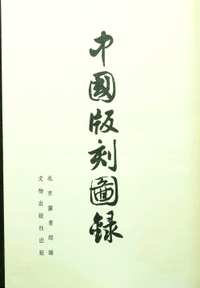 中國版刻圖錄
北京圖書館編
文物出版社出版